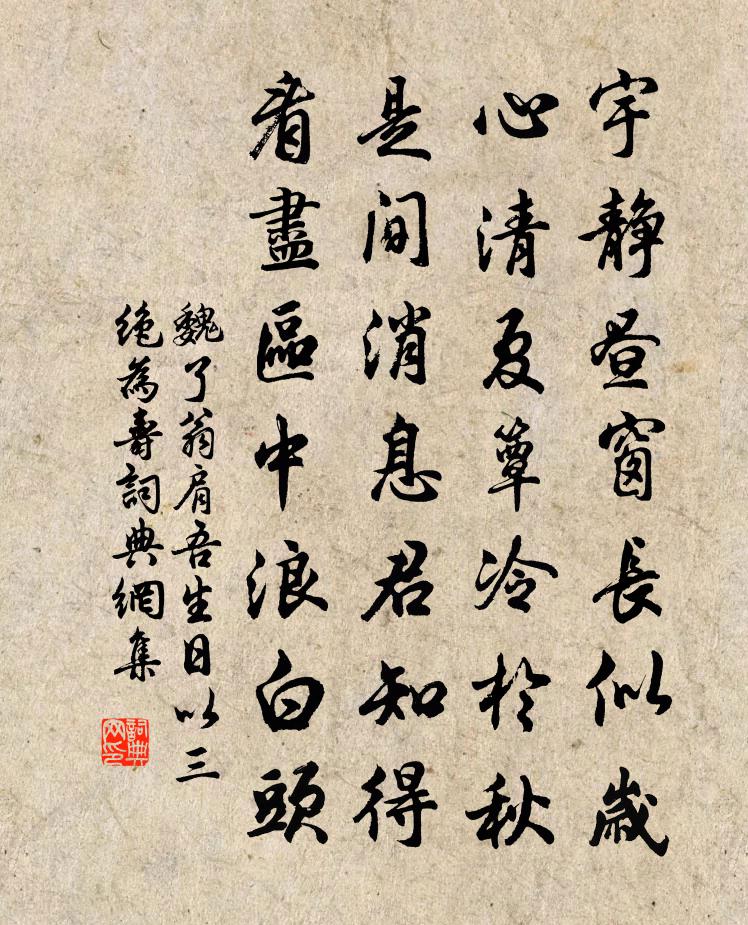 宇靜晝窗長似歲
心清夏簟冷於秋
是間消息君知得
看盡區中浪白頭
魏了翁肩吾生日以三
絶為壽詞典網集
詞典網印